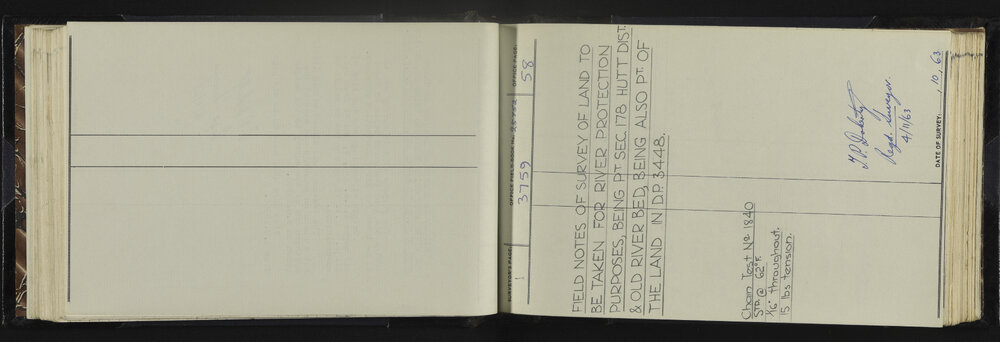 SURVEYOR'S PAGE: 1 OFFICE FIELD BOOK No. 3759 OFFICE PAGE: 58
FIELD NOTES OF SURVEY OF LAND TO
BE TAKEN FOR RIVER PROTECTION
PURPOSES, BEING PT SEC. 178 HUTT DIST.
& OLD RIVER BED, BEING ALSO PT. OF
THE LAND IN D.P. 3448.
Chain Test No 1840
STD @ 62°F.
throughout.
15 lbs tension.
Regd. Surveyor.
4/11/63
DATE OF SURVEY: , 10, 63